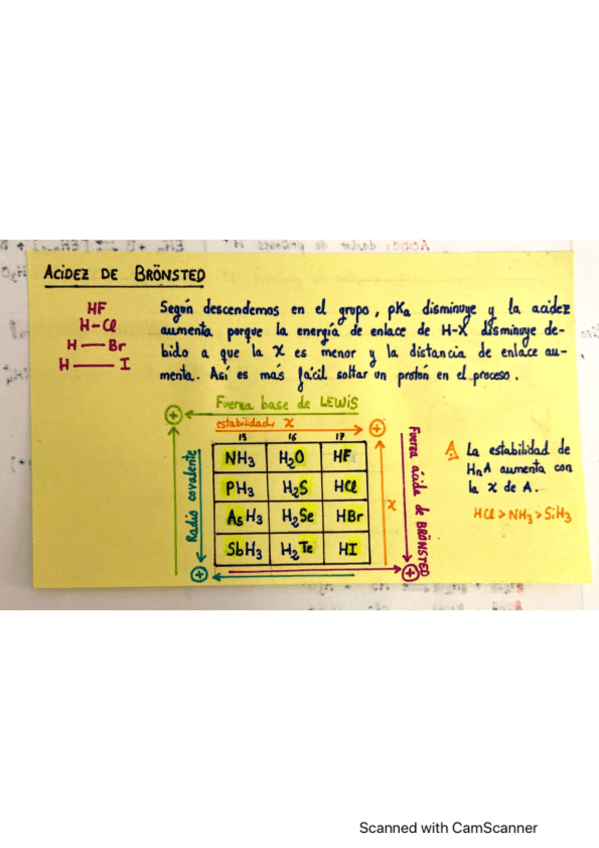 ACIDEZ DE BRÖNSTED
HF
H-Cl
H — Br
H —— I
Según descendemos en el grupo, pKa disminuye y la acidez
aumenta porque la energía de enlace de H-X disminuye de-
bido a que la χ es menor y la distancia de enlace au-
menta. Así es más fácil soltar un protón en el proceso.
Fuerza base de LEWIS
estabilidad, χ
15 16 17
NH3 H2O HF
PH3 H2S HCl
AsH3 H2Se HBr
SbH3 H2Te HI
Radio covalente
χ
Fuerza ácida de BRÖNSTED
La estabilidad de
HnA aumenta con
la χ de A.
HCl > NH3 > SiH3
Scanned with CamScanner